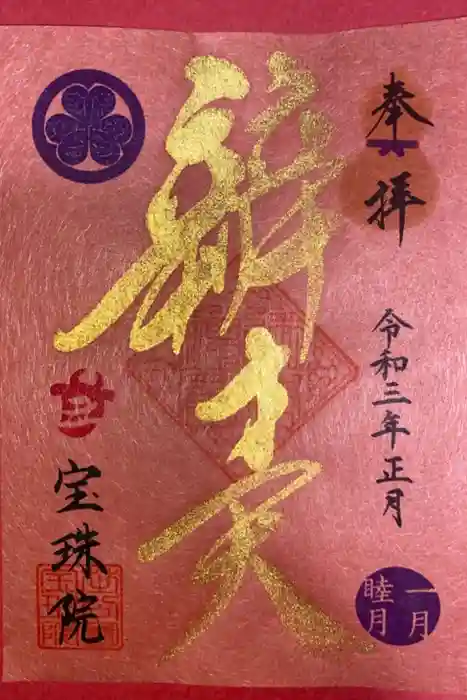 奉拝
令和三年正月
辨才天
宝珠院
一月
睦月